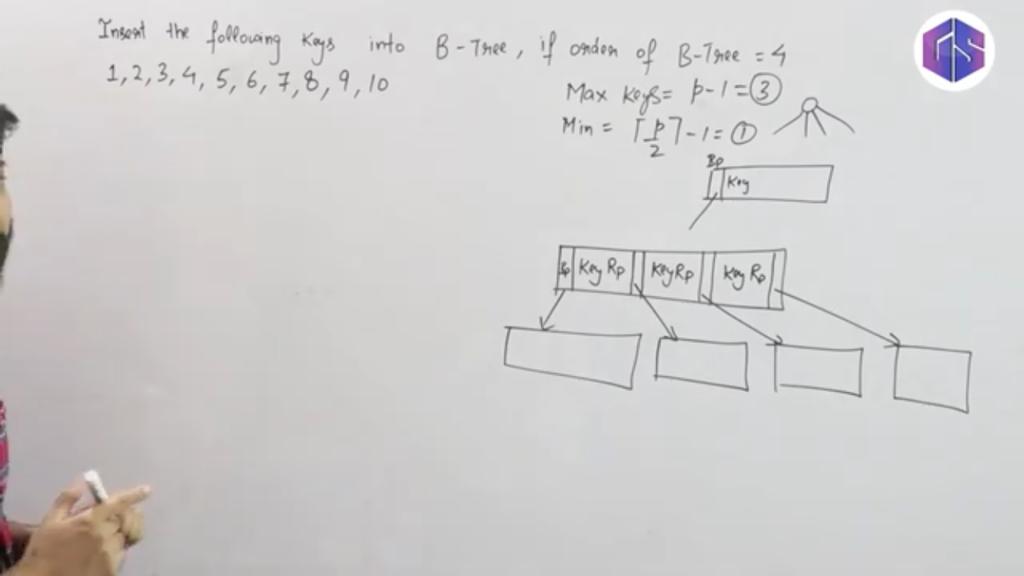 Insert the following Keys into B-Tree, if order of B-Tree = 4
1, 2, 3, 4, 5, 6, 7, 8, 9, 10
Max Keys = p-1 = 3
Min = ⌈p/2⌉-1 = 1
Bp
Key
Bp Key Rp Key Rp Key Rp